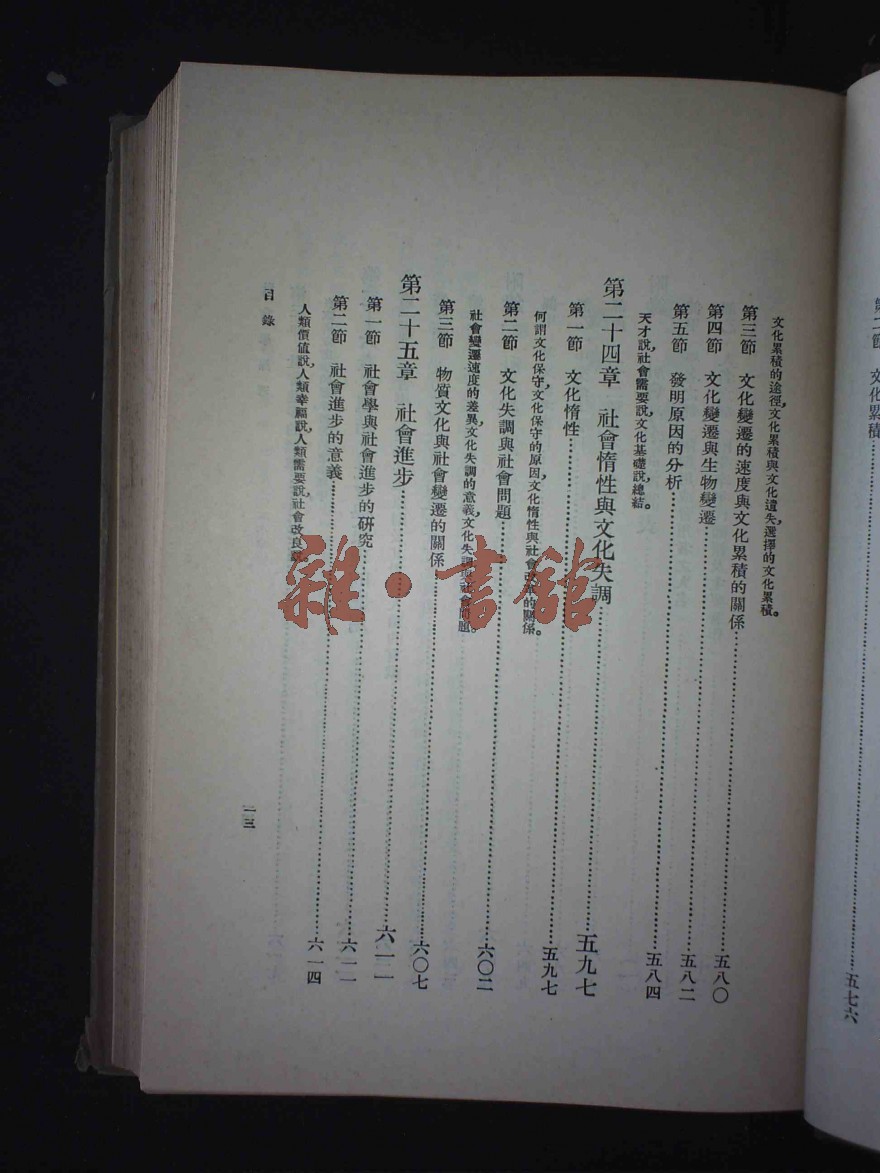 第二節　文化累積……五七六
文化累積的途徑，文化累積與文化遺失，選擇的文化累積。
第三節　文化變遷的速度與文化累積的關係……五八〇
第四節　文化變遷與生物變遷……五八二
第五節　發明原因的分析……五八四
天才說，社會需要說，文化基礎說，總結。
第二十四章　社會惰性與文化失調……五九七
第一節　文化惰性……五九七
何謂文化保守，文化保守的原因，文化惰性與社會改革的關係。
第二節　文化失調與社會問題……六〇二
社會變遷速度的差異，文化失調的意義，文化失調與社會問題。
第三節　物質文化與社會變遷的關係……六〇七
第二十五章　社會進步……六一一
第一節　社會學與社會進步的研究……六一一
第二節　社會進步的意義……六一四
人類價值說，人類幸福說，人類需要說，社會改良
目錄
二三
雜·書館